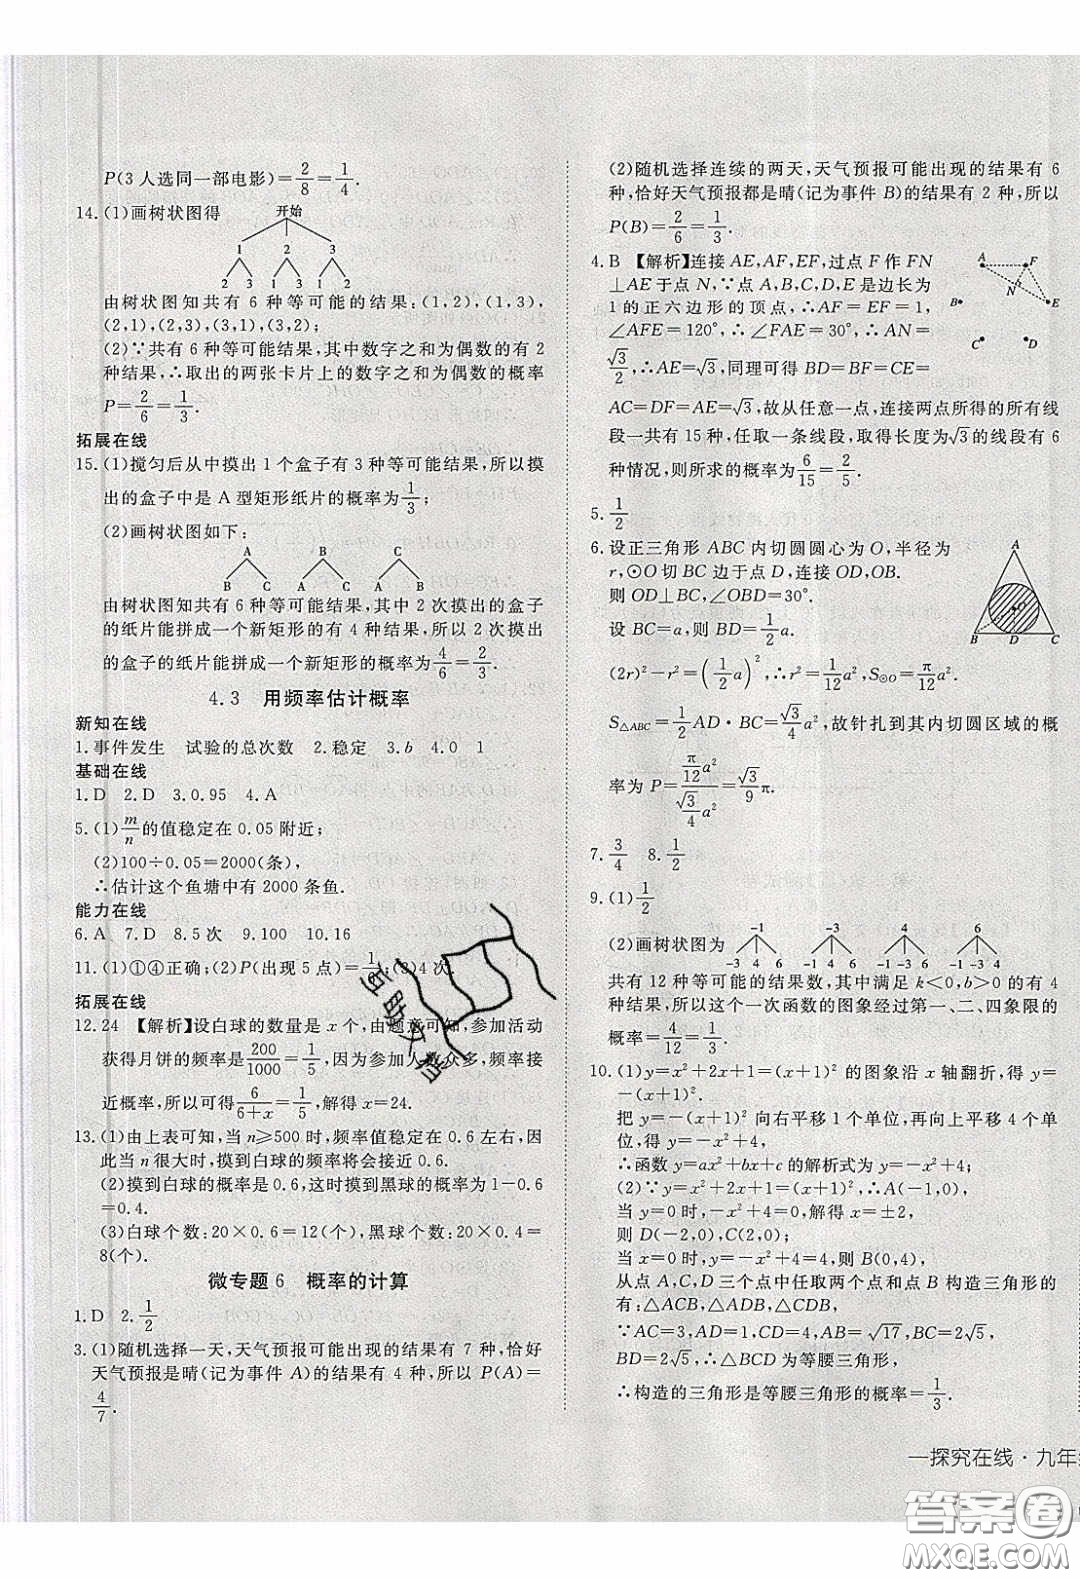 P(3 人选同一部电影)=2/8=1/4.
14. (1)画树状图得
开始
1 2 3
2 3 1 3 1 2
由树状图知共有 6 种等可能的结果:(1,2),(1,3),
(2,1),(2,3),(3,1),(3,2);
(2)∵共有 6 种等可能结果,其中数字之和为偶数的有 2
种结果,∴取出的两张卡片上的数字之和为偶数的概率
P=2/6=1/3.
拓展在线
15. (1)搅匀后从中摸出 1 个盒子有 3 种等可能结果,所以摸
出的盒子中是 A 型矩形纸片的概率为1/3;
(2)画树状图如下:
A B C
B C A C A B
由树状图知共有 6 种等可能结果,其中 2 次摸出的盒子
的纸片能拼成一个新矩形的有 4 种结果,所以 2 次摸出
的盒子的纸片能拼成一个新矩形的概率为4/6=2/3.
4.3 用频率估计概率
新知在线
1. 事件发生 试验的总次数 2. 稳定 3. b 4. 0 1
基础在线
1. D 2. D 3. 0.95 4. A
5. (1)m/n的值稳定在 0.05 附近;
(2)100÷0.05=2000(条),
∴估计这个鱼塘中有 2000 条鱼.
能力在线
6. A 7. D 8. 5 次 9. 100 10. 16
11. (1)①④正确;(2)P(出现 5 点)=1/6;(3)4 次.
拓展在线
12. 24 【解析】设白球的数量是 x 个,由题意可知,参加活动
获得月饼的频率是200/1000=1/5,因为参加人数众多,频率接
近概率,所以可得6/(6+x)=1/5,解得 x=24.
13. (1)由上表可知,当 n≥500时,频率值稳定在 0.6 左右,因
此当 n 很大时,摸到白球的频率将会接近 0.6.
(2)摸到白球的概率是 0.6,这时摸到黑球的概率是 1-0.6
=0.4.
(3)白球个数:20×0.6=12(个),黑球个数:20×0.4=
8(个).
微专题 6 概率的计算
1. D 2. 1/2
3. (1)随机选择一天,天气预报可能出现的结果有 7 种,恰好
天气预报是晴(记为事件 A)的结果有 4 种,所以 P(A)=
4/7.
(2)随机选择连续的两天,天气预报可能出现的结果有 6
种,恰好天气预报都是晴(记为事件 B)的结果有 2 种,所以
P(B)=2/6=1/3.
4. B 【解析】连接 AE,AF,EF,过点 F 作 FN
⊥AE 于点 N,∵点 A,D,E 是边长为
1 的正六边形的顶点,∴AF=EF=1,
∠AFE=120°,∴∠FAE=30°,∴AN=
√3/2,∴AE=√3,同理可得 BD=BF=CE=
AC=DF=AE=√3,故从任意一点,连接两点所得的所有线
段一共有 15 种,任取一条线段,取得长度为√3的线段有 6
种情况,则所求的概率为6/15=2/5.
A F N B E C D
5. 1/2
6. 设正三角形 ABC 内切圆圆心为 O,半径为
r,⊙O 切 BC 边于点 D,连接 OD,OB.
则 OD⊥BC,∠OBD=30°.
设 BC=a,则 BD=1/2a.
A O B D C
(2r)²-r²=(1/2a)²,∴r²=1/12a²,S⊙O=π/12a²,
S△ABC=1/2AD·BC=√3/4a²,故针扎到其内切圆区域的概
率为 P=(π/12a²)/(√3/4a²)=√3/9π.
7. 3/4 8. 1/2
9. (1)1/2
(2)画树状图为
-1 -3 4 6
-3 4 6 -1 4 6 -1 -3 6 -1 -3 4
共有 12 种等可能的结果数,其中满足 k<0,b>0 的有 4
种结果,所以这个一次函数的图象经过第一、二、四象限的
概率=4/12=1/3.
10. (1)y=x²+2x+1=(x+1)²的图象沿 x 轴翻折,得 y=
-(x+1)².
把 y=-(x+1)² 向右平移 1 个单位,再向上平移 4 个单
位,得 y=-x²+4;
∴函数 y=ax²+bx+c 的解析式为 y=-x²+4;
(2)∵y=x²+2x+1=(x+1)²,∴A(-1,0),
当 y=0 时,-x²+4=0,解得 x=±2,
则 D(-2,0),C(2,0);
当 x=0时,y=-x²+4=4,则 B(0,4),
从点 A,C,D 三个点中任取两个点和点 B 构造三角形的
有:△ACB,△ADB,△CDB,
∵AC=3,AD=1,CD=4,AB=√17,BC=2√5,
BD=2√5,∴△BCD 为等腰三角形,
∴构造的三角形是等腰三角形的概率=1/3.
一探究在线·九年
答案圈
MXQE.COM